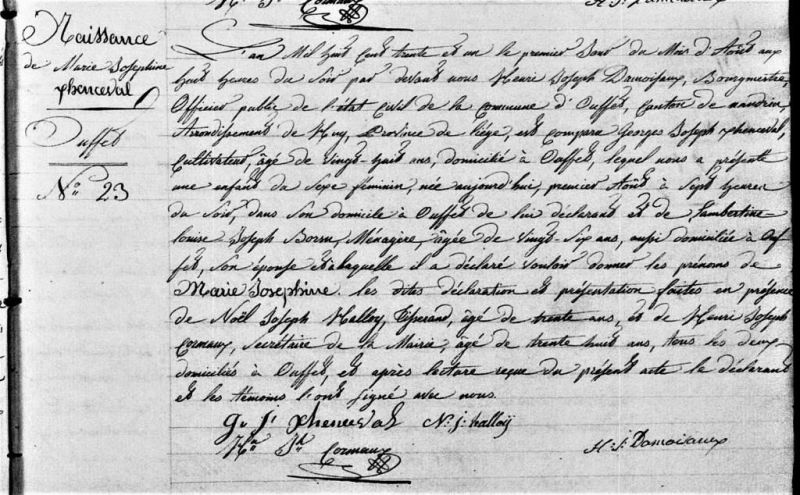 H. J. Damoiseaux
Naissance
de Marie Josephine
xhenceval
Ouffet
N.º 23
L'an Mil huit Cent trente et un le premier Jour du Mois d'Août aux
huit heures du Soir par devant nous Henri Joseph Damoiseaux, Bourgmestre,
Officier public de l'état Civil de la Commune d'Ouffet, Canton de nandrin,
Arrondissement de Huy, Province de Liége, est Comparu Georges Joseph xhenceval,
Cultivateur, âgé de vingt huit ans, domicilié à Ouffet, lequel nous a présenté
une enfant du Sexe féminin, née aujourd'hui, premier Août à Sept heures
du Soir, dans Son domicile à Ouffet de lui déclarant et de Lambertine
Louise Joseph Borsu, Ménagère, âgée de vingt-Six ans, aussi domiciliée à Ouf-
fet, Son épouse et à laquelle il a déclaré vouloir donner les prénoms de
Marie Josephine. les dites déclaration et présentation faites en présence
de Noël Joseph Halloy, Tisserand, âgé de trente ans, et de Henri Joseph
Cormaux, Secrétaire de la Mairie, âgé de trente huit ans, tous les deux
domiciliés à Ouffet, et après lecture reçue du présent acte le déclarant
et les témoins l'ont Signé avec nous.
G. J. xhenceval N. j. halloÿ
H. J. Cormaux H. j. Damoiseaux